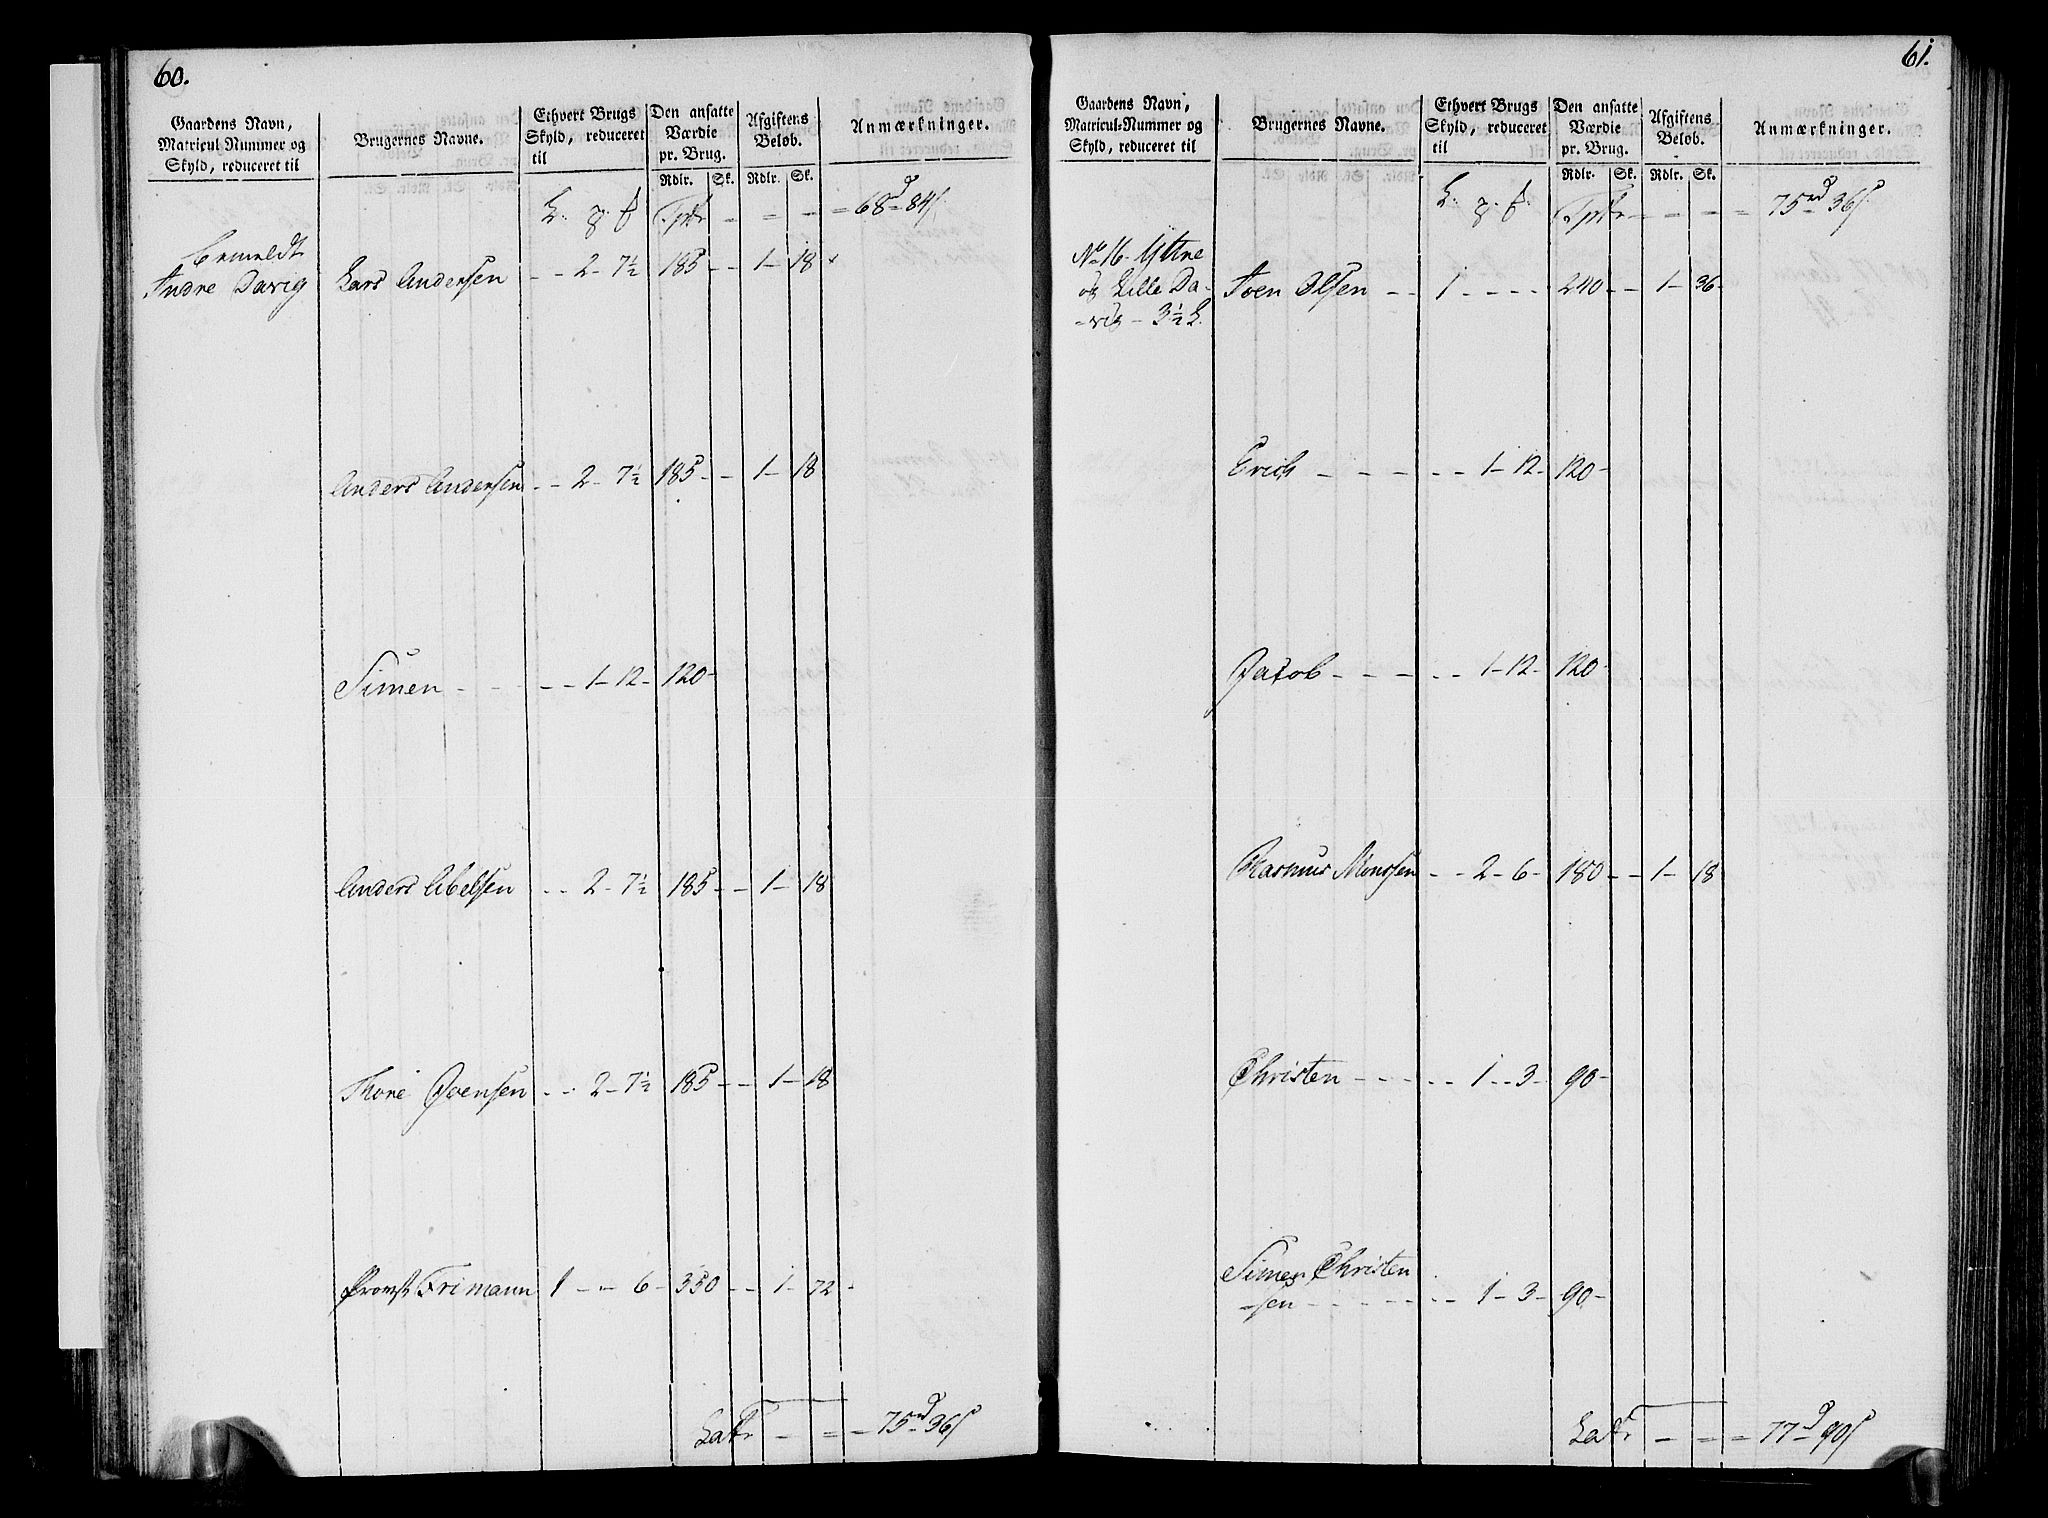 60.
Gaardens Navn, Matricul Nummer og Skyld, reduceret til | Brugernes Navne. | Ethvert Brugs Skyld, reduceret til | Den ansatte Værdie pr. Brug. Rdlr. Sk. | Afgiftens Beløb. Rdlr. Sk. | Anmærkninger.
Tpt - - - = 68 = 84
Andre Davig | Lars Andersen - - 2 - 7½ | 185 - - | 1 - 18
Anders Andersen - - 2 - 7½ | 185 - - | 1 - 18
Simen - - - - - 1 - 12 - | 120 -
Anders Abelsen - - 2 - 7½ | 185 - - | 1 - 18
Thore Joensen - - 2 - 7½ | 185 - - | 1 - 18
Provst Frimann 1 - - 6 - | 350 - - | 1 - 72 -
Latr - = = 75 rd 36
61.
Gaardens Navn, Matricul-Nummer og Skyld, reduceret til | Brugernes Navne. | Ethvert Brugs Skyld, reduceret til | Den ansatte Værdie pr. Brug. Rdlr. Sk. | Afgiftens Beløb. Rdlr. Sk. | Anmærkninger.
Tptr - - - = 75 rd 36
No 16 Yttre
og Lille Da- | Iven Olsen - - 1 - - - - | 240 - - | 1 - 36
-vig - 3½ L.
Erich - - - - - - 1 - 12 - | 120 -
Jacob - - - - - 1 - 12 - | 120
Rasmus Monssen - - 2 - 6 - | 180 - - | 1 - 18
Christen - - - - - - 1 - - 3 - | 90 -
Simen Christen
-sen - - - - - - - 1 - 3 - | 90 -
Latr - = = 77 90